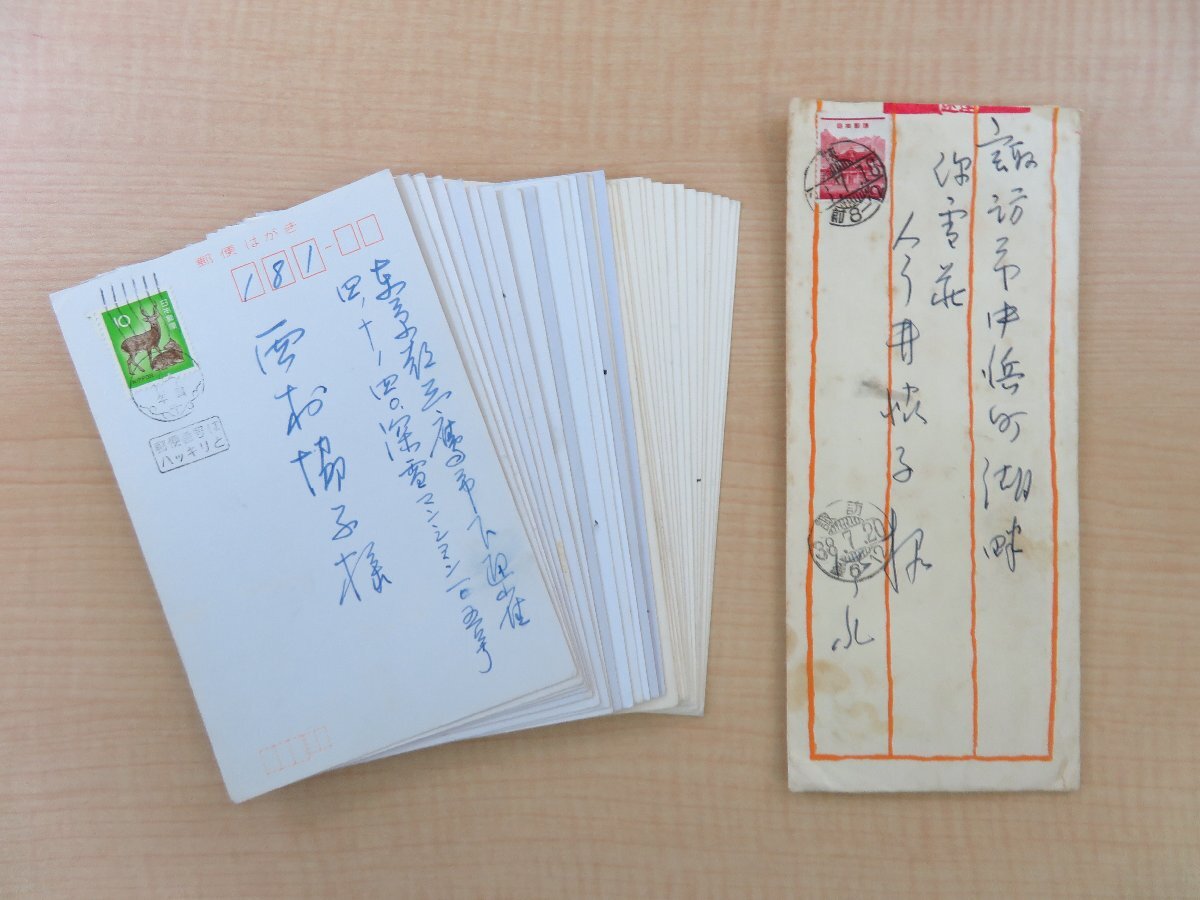 郵便はがき
181
東京都三鷹市下連雀
四、十一四〇、深雪マンション一〇五号
西村協子様
10
日本郵便
郵便番号は
ハッキリと
諏訪市中浜町湖畔
弥雪荘
今井
子様
日本郵便
38.7.20